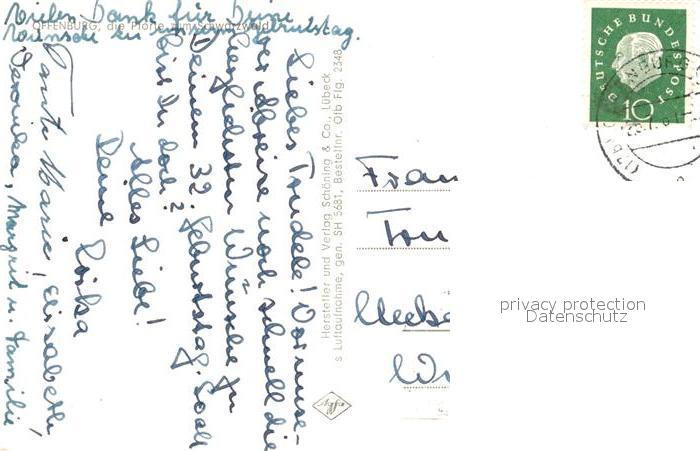 Vielen Dank für Deine
Wünsche zu meinem Geburtstag.
OFFENBURG, die Pforte zum Schwarzwald
Liebes Trudele! Vor unse-
rer Abreise noch schnell die
herzlichsten Wünsche zu
Deinem 32. Geburtstag. Gell
bist Du doch?
Alles Liebe!
Deine Rösla
Tante Marie! Elisabeth,
Veronika, Margrit u. Familie
Hersteller und Verlag Schöning & Co., Lübeck
s Luftaufnahme, gen. SH 5681, Bestellnr. Offb Flg. 2348
Agfa
Frau
Tru
DEUTSCHE BUNDESPOST
10
privacy protection
Datenschutz